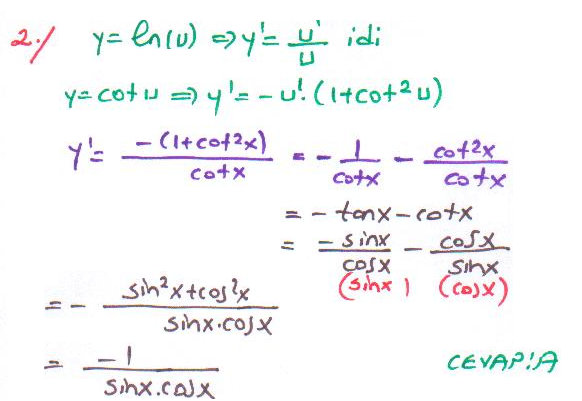 2-/ y = ln(u) ⇒ y' = u'/u idi
y = cotu ⇒ y' = -u'.(1+cot²u)
y' = -(1+cot²x)/cotx = - 1/cotx - cot²x/cotx
= -tanx-cotx
= -sinx/cosx - cosx/sinx
(sinx) (cosx)
= - sin²x+cos²x/sinx.cosx
= -1/sinx.cosx
CEVAP:A